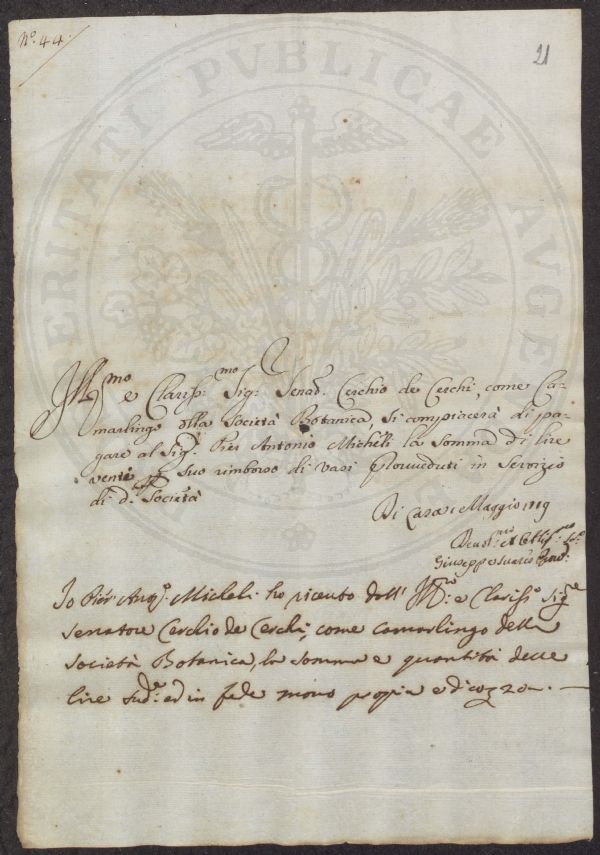 N.° 44.
21
PERITATI PVBLICAE AVGE
Ill.mo e Clariss.mo Sig.r Senat. Cerchio de Cerchi, come Ca-
marlingo della Società Botanica, si compiacerà di pa-
gare al Sig.r Pier Antonio Micheli la somma di lire
venti p suo rimborso di vasi provveduti in servizio
di d.a Società
Di Casa Maggio
Giuseppe
Io Pier Ant.o Micheli ho riceuto dall' Ill.mo e Clariss.o Sig.re
Senatore Cerchio de Cerchi, come camarlingo della
Società Botanica, la somma e quantità delle
lire sud.e ed in fede mano propia